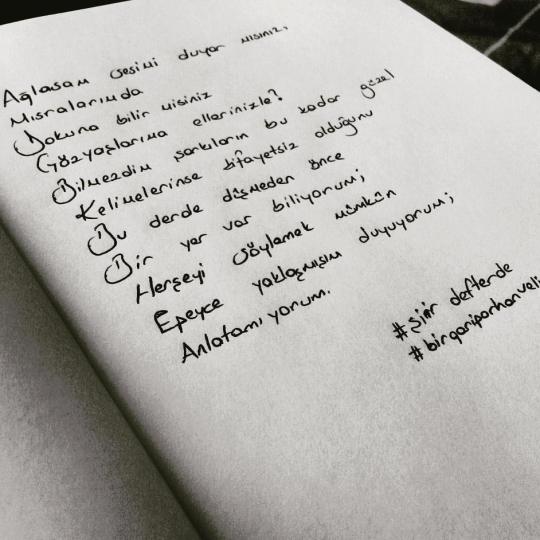 Ağlasam sesimi duyar mısınız,
Mısralarımda
Dokuna bilir misiniz
Gözyaşlarıma ellerinizle?
Bilmezdim şarkıların bu kadar güzel
Kelimelerinse kifayetsiz olduğunu
Bu derde düşmeden önce
Bir yer var biliyorum;
Herşeyi söylemek mümkün
Epeyce yaklaşmışım duyuyorum;
Anlatamıyorum.
#şiir defterde
#birgariporhanveli